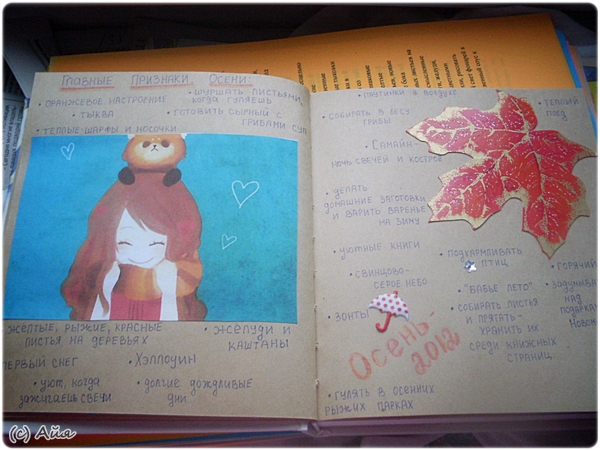 Главные признаки осени:
• оранжевое настроение
• шуршать листьями,
когда гуляешь
• тыква
• готовить сырный с
грибами суп
• тёплые шарфы и носочки
• жёлтые, рыжие, красные
листья на деревьях
• жёлуди и
каштаны
первый снег
• Хэллоуин
• уют, когда
зажигаешь свечи
• долгие дождливые
дни
паутинки в воздухе
• собирать в лесу
грибы
• тёплый
плед
• Самайн-
ночь свечей и костров
• делать
домашние заготовки
и варить варенье
на зиму
• уютные книги
• подкармливать
птиц
• горячий
• свинцово-
серое небо
• "бабье лето"
• задумыва
над
подарка
Новом
• зонты
• собирать листья
и прятать-
хранить их
среди книжных
страниц
Осень-
2012
• гулять в осенних
рыжих парках
(c) Айя